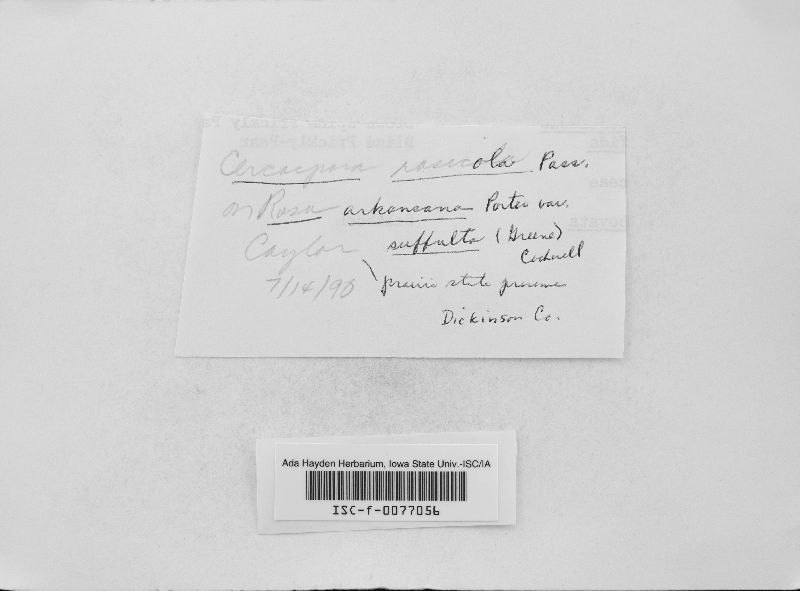 Cercospora rosicola Pass.
on Rosa arkansana Porter var.
Caylor suffulta (Greene)
Cockerell
7/14/90 prairie state preserve
Dickinson Co.
Ada Hayden Herbarium, Iowa State Univ.-ISC/IA
ISC-f-0077056